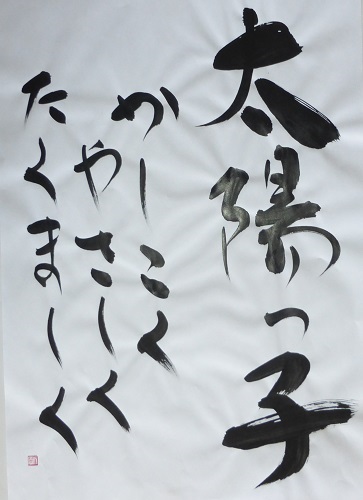 太陽っ子
かしこく
やさしく
たくましく